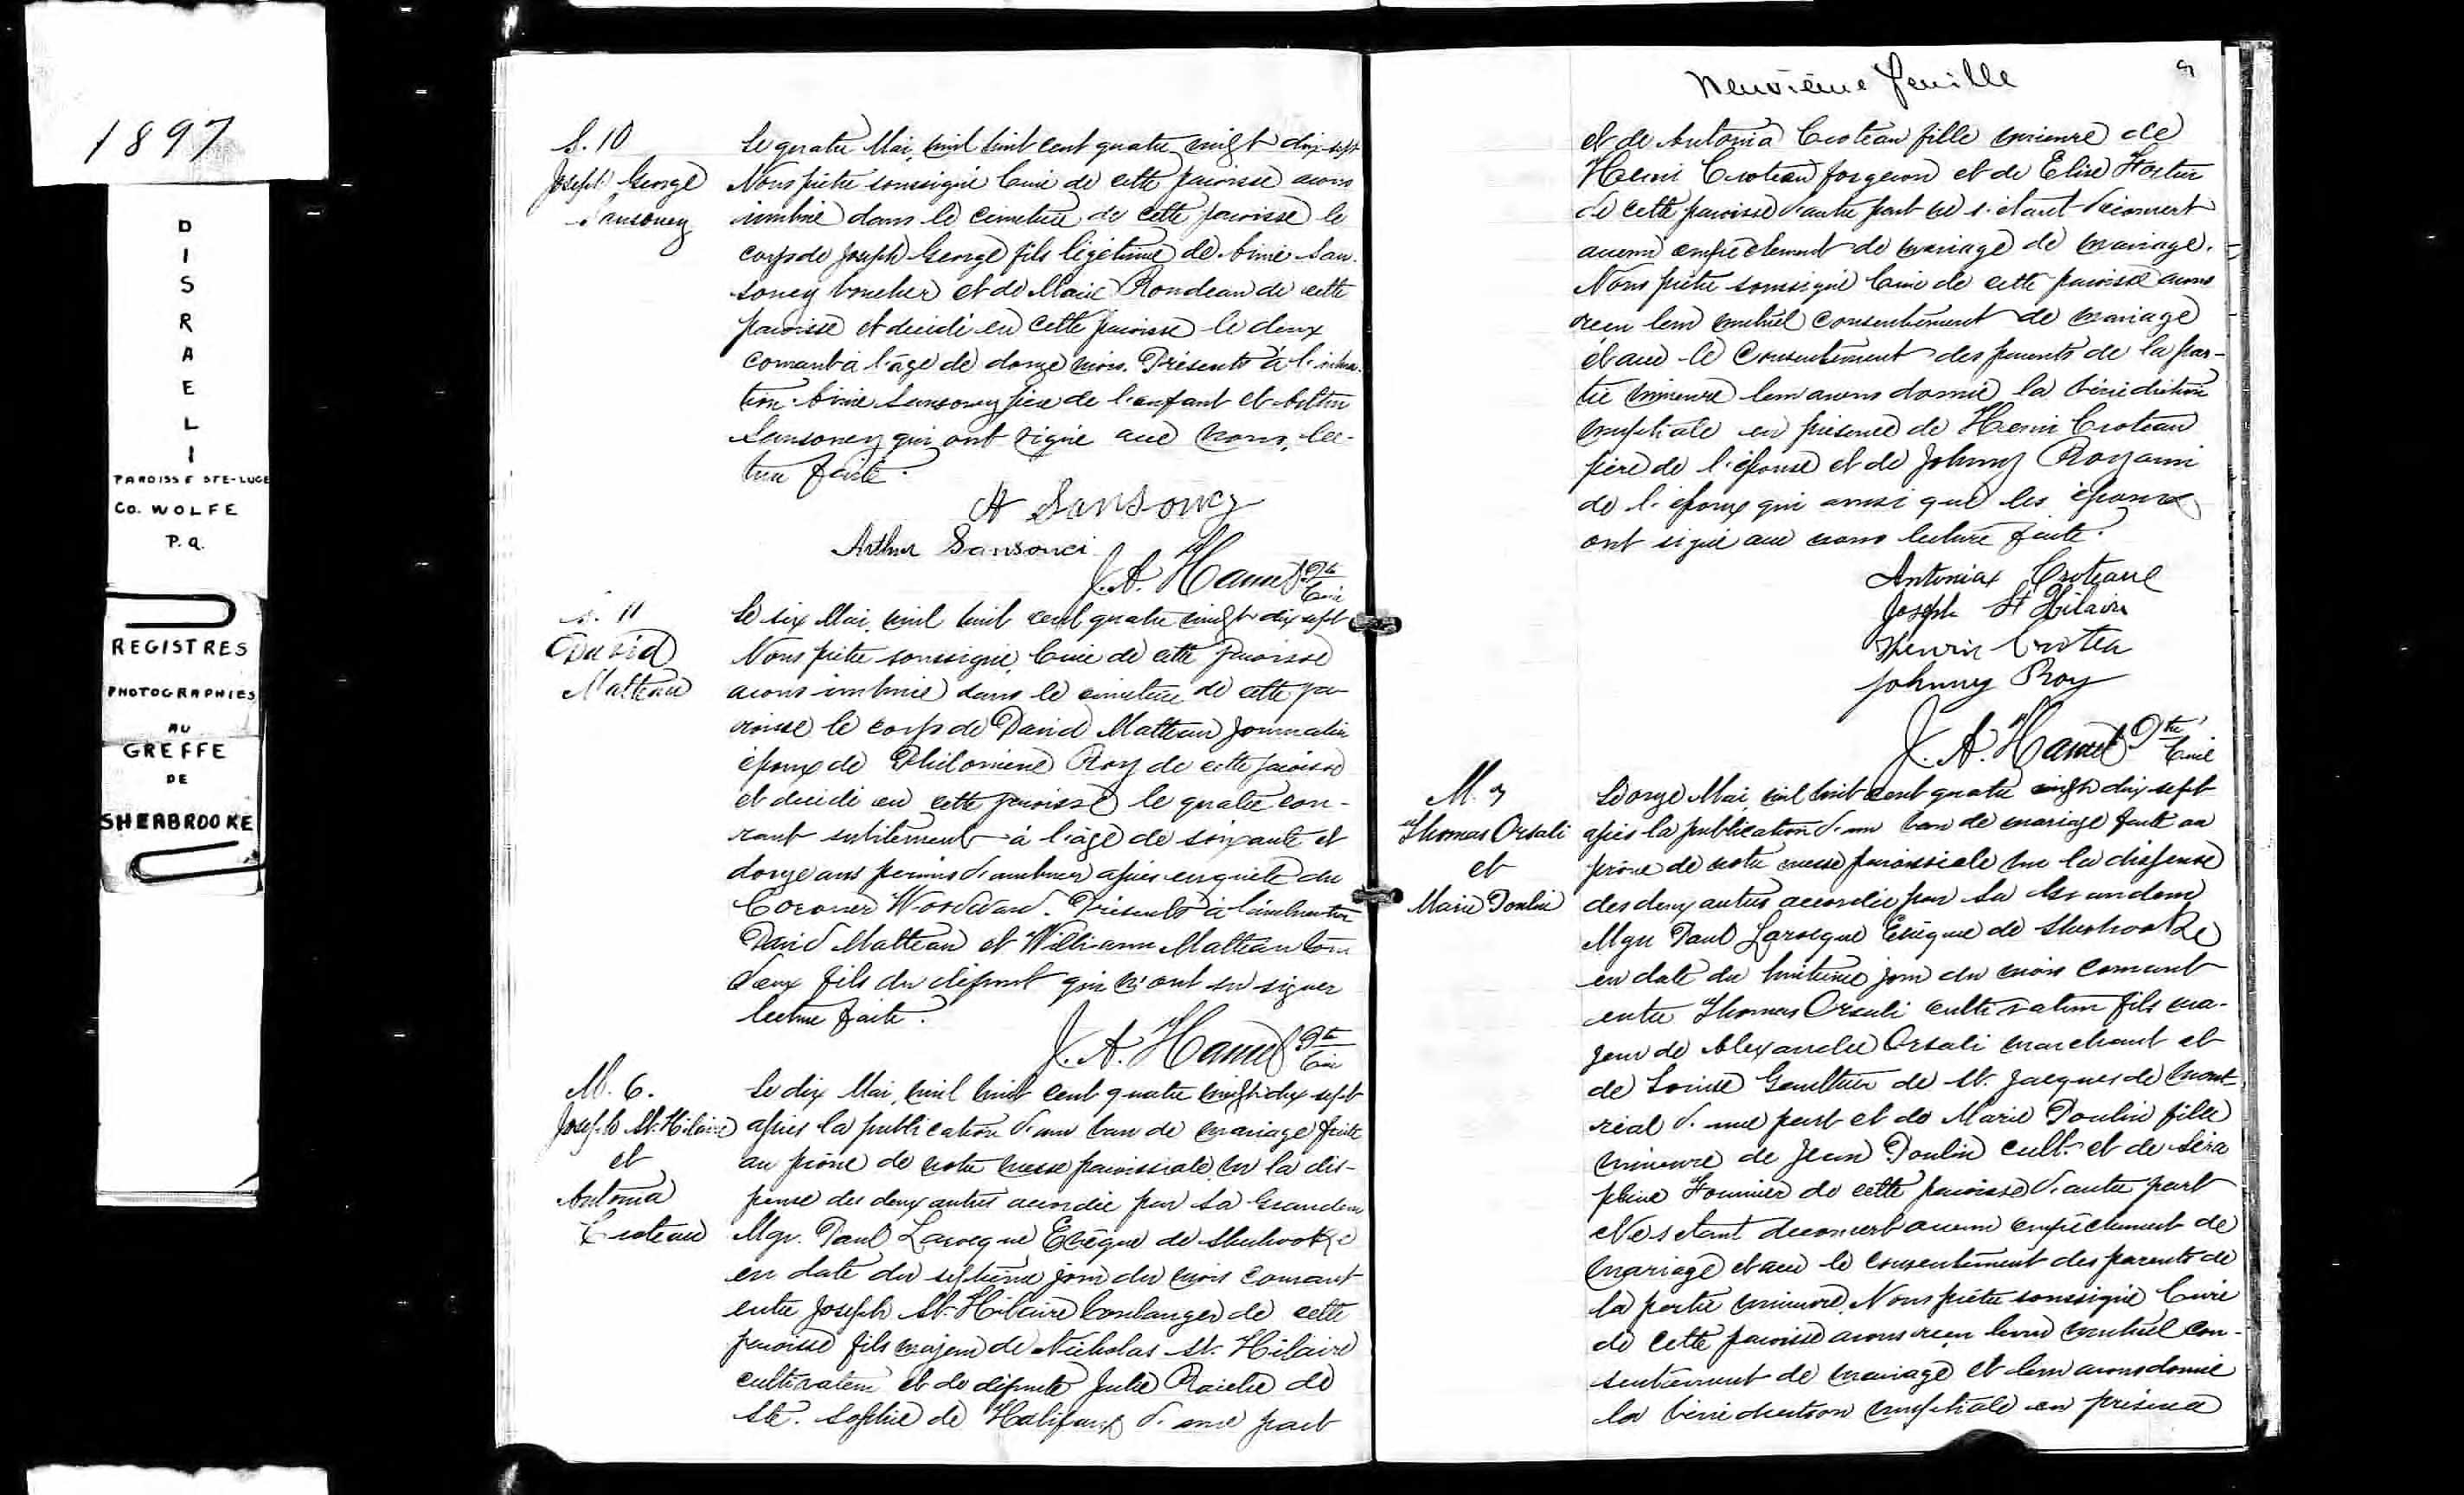 1897
DISRAELI
PAROISSE STE-LUCE
CO. WOLFE
P.Q.
REGISTRES
PHOTOGRAPHIES
AU
GREFFE
DE
SHERBROOKE
S. 10
Joseph George
Sansoucy
Le quatre Mai, mil huit cent quatre vingt dix-sept
Nous prêtre soussigné Curé de cette paroisse avons
inhumé dans le cimetière de cette paroisse le
corps de Joseph George fils légitime de Aimé San-
soucy boucher et de Marie Rondeau de cette
paroisse et décédé en cette paroisse le deux
courant à l'âge de douze mois. Présents à l'inhuma-
tion Aimé Sansoucy père de l'enfant et Arthur
Sansoucy qui ont signé avec nous, lec-
ture faite.
A Sansoucy
Arthur Sansouci
J. A. Hamel Ptre
Curé
S. 11
David
Matteau
Le six Mai, mil huit cent quatre vingt dix sept
Nous prêtre soussigné, Curé de cette paroisse
avons inhumé dans le cimetière de cette pa-
roisse le corps de David Matteau Journalier
époux de Philomène Roy de cette paroisse
et décédé en cette paroisse le quatre cou-
rant subitement à l'âge de soixante et
douze ans permis d'inhumer après enquête du
Coroner Woodward. Présents à l'inhumation
David Matteau et William Matteau tous
deux fils du défunt qui n'ont su signer
lecture faite.
J. A. Hamel Ptre
Curé
M. 6.
Joseph St. Hilaire
et
Antonia
Croteau
Le dix Mai, mil huit cent quatre vingt dix sept
après la publication d'un ban de mariage faite
au prône de notre messe paroissiale, vu la dis-
pense des deux autres accordée par Sa Grandeur
Mgr. Paul Larocque Evêque de Sherbrooke
en date du septième jour du mois courant
entre Joseph St. Hilaire boulanger de cette
paroisse fils majeur de Nicholas St. Hilaire
cultivateur et de défunte Julie Raiche de
Ste. Sophie de Halifax d'une part
Neuvième feuille
9
et de Antonia Croteau fille mineure de
Henri Croteau forgeron et de Elise Fortier
de cette paroisse d'autre part ne s'étant découvert
aucun empêchement de mariage de mariage.
Nous prêtre soussigné Curé de cette paroisse avons
reçu leur mutuel consentement de mariage
et avec le consentement des parents de la par-
tie mineure leur avons donné la bénédiction
nuptiale en présence de Henri Croteau
père de l'épouse et de Johnny Roy ami
de l'époux qui ainsi que les époux
ont signé avec nous lecture faite.
Antonia Croteau
Joseph St Hilaire
Henri Crotea
Johnny Roy
J. A. Hamel Ptre
Curé
M. 7
Thomas Orsali
et
Marie Poulin
Le onze Mai, mil huit cent quatre vingt dix sept
après la publication d'un ban de mariage faite au
prône de notre messe paroissiale vu la dispense
des deux autres accordée par Sa Grandeur
Mgr Paul Larocque Evêque de Sherbrooke
en date du huitième jour du mois courant
entre Thomas Orsali cultivateur fils ma-
jeur de Alexandre Orsali marchand et
de Louise Gaulthier de St. Jacques de Mont-
réal d'une part et de Marie Poulin fille
mineure de Jean Poulin cult. et de Séra
phine Fournier de cette paroisse d'autre part
Ne s'étant découvert aucun empêchement de
mariage et avec le consentement des parents de
la partie mineure, Nous prêtre soussigné Curé
de cette paroisse avons reçu leur mutuel con-
sentement de mariage et leur avons donné
la bénédiction nuptiale en présence